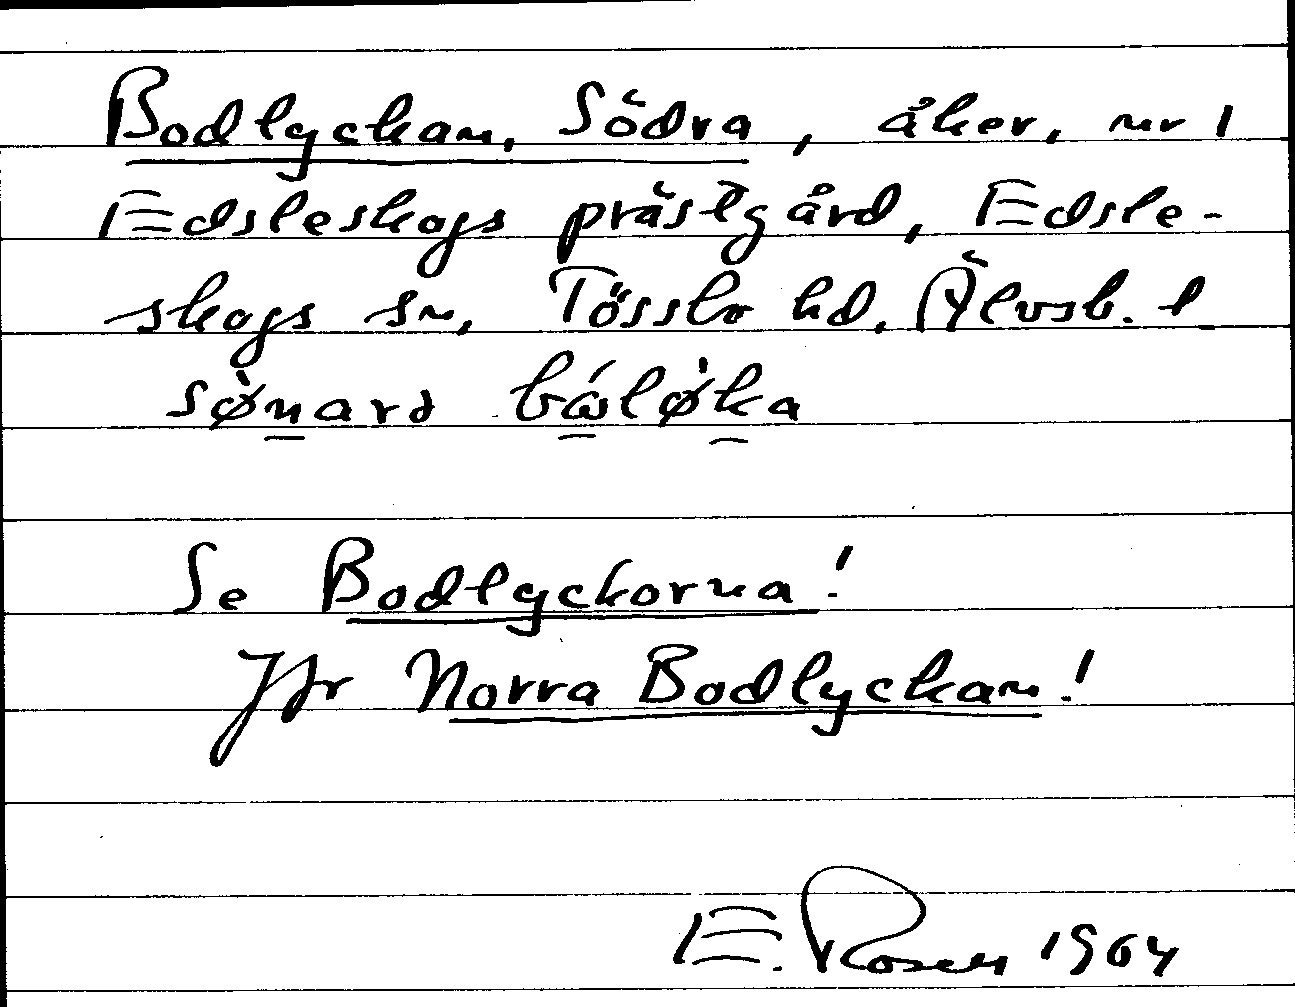 Bodlyckan, Södra, åker, nr 1
Edsleskogs prästgård, Edsle-
skogs sn, Tössbo hd, Älvsb. l
Se Bodlyckorna!
Jfr Norra Bodlyckan!
E. Rosen 1964